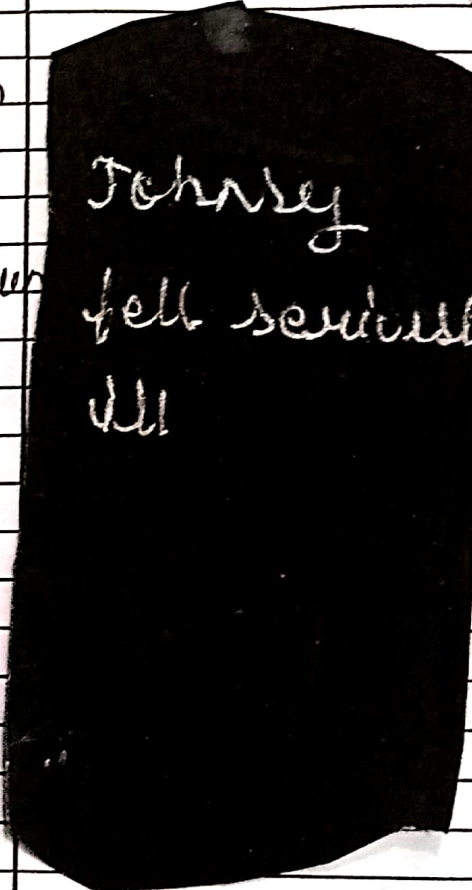 Johnsy
fell serious
ill